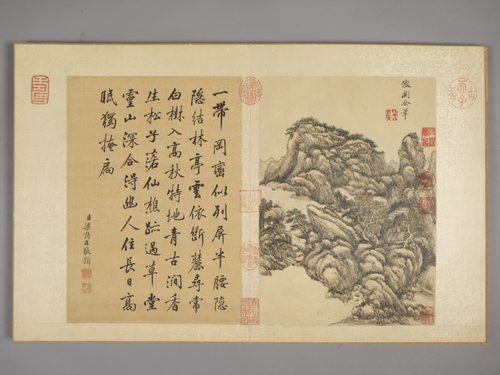 倣關仝筆
一帶岡巒似列屏半腰隱
隱結林亭雲依斷麓尋常
白樹入高秋特地青古澗香
生松子落仙樵跡過草堂
靈山深合得幽人住長日高
眠獨掩扃
臣梁詩正敬題